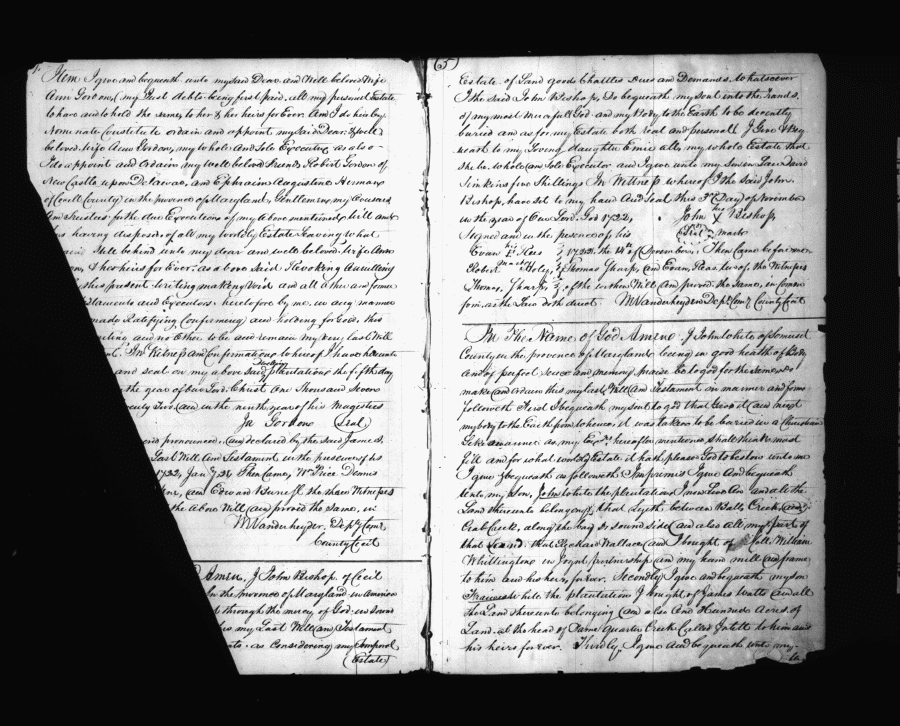 Item I give and bequeath unto my said Dear and Well beloved Wife
Ann Gordon, (my Just debts being first paid, all my personal Estate
to have and to hold the same, to her & her heirs for Ever. And I do hereby
Nominate Constitute ordain and appoint my said Dear & well
beloved Wife Ann Gordon, my whole and Sole Executrix, as also
I do appoint and ordain my well beloved friends Robert Gordon of
New Castle upon Delaware, and Ephraim Augustine Herman
of (Cecill County) in the province of Maryland, Gentlemen, my
and Trustees for the due Execution of my above mentioned will and
as having disposed of all my worldly Estate Leaving what
Will behind unto my dear and well beloved Wife Ann
& her heirs for Ever, as above said Revoking & nulling
this present writing making Void and all other and former
Testaments and Executors heretofore by me, in any manner
made Ratifying Confirming and holding for Good, this
and no Other to be and remain my very Last Will
In Witness and confirmation whereof I have hereunto
and seal on my above said plantations the fifth day
the year of Our Lord Christ One Thousand Seven
Two (and in the ninth year of his Magisties
Ja Gordon (Seal)
pronounced, and declared by the said James,
Last Will and Testament in the presence of us
1722, Jan Then Came, Wm Price Dennis
and Edward the three Witnesses
the above Will (and proved the same, in
M Vanderheyden Depty Com
County Cecil
Amen, I John Bishop, of Cecil
the province of Maryland in America
through the mercy of God, in Sound
my Last Will (and Testament
as Considering my Temporal
(Estate)
(5)
Estate of Land goods Chattles Dues and Demands, whatsoever
I the said John Bishop, Do bequeath my soul into the hands,
of my most Mercifull God and my Body to the Earth to be decently
buried and as for my Estate both real and personall I Give &
unto my Loving daughter my whole Estate that
she be whole (and Sole Executor and I give unto my Son in Law David
Jenkins five Shillings In Witness whereof I the said John
Bishop, have set to my hand And Seal this 3d (Day) of November
in the year of Our Lord God 1722,
John his X mark Bishop
Signed and in the presence of us
(Seal)
Evan his Rees 1722 the 14th of (December, Then Came before me
Robert mark Thomas Tharp, and Evan Rees two of the Witnesses
Thomas, Tharp, of the within Will and proved the same, in Common
form, as the Law doth direct M Vanderheyden Depty Com County Cecil
In The Name of God Amen I John White of Somerset
County in the province of Maryland being in good health of Body
and of perfect Sence and memory praise be to god for the same, Do
make and ordain this my last Will and Testament in manner and form
followeth First I bequeath my soul to god that Gave it and next
my body to the Earth from whence, it was taken to be buried in a Christian
Like manner as my Exrs hereafter mentioned shall think most
fitt and for what worldly Estate it hath pleased God to bestow unto me
I give & bequeath as followeth Imprimis I give And bequeath
unto, my Son, John White the plantation I now Live On and all the
Land thereunto belonging, that lyeth between Balls Creek, and
Crab Creek, along the bay & sound side (and also all my part of
that Island that Elephan Wallace (and I bought of Coll. William
Whittington in Joynt partnership and my hand mill and frame
to him and his heirs, forever. Secondly I give and bequeath my son
Francis White the plantation I bought of James Watts and all
the Land thereunto belonging (and also One Hundred Acres of
Land at the head of Quarter Creek Called to him and
his heirs forever. Thirdly, I give And bequeath unto my